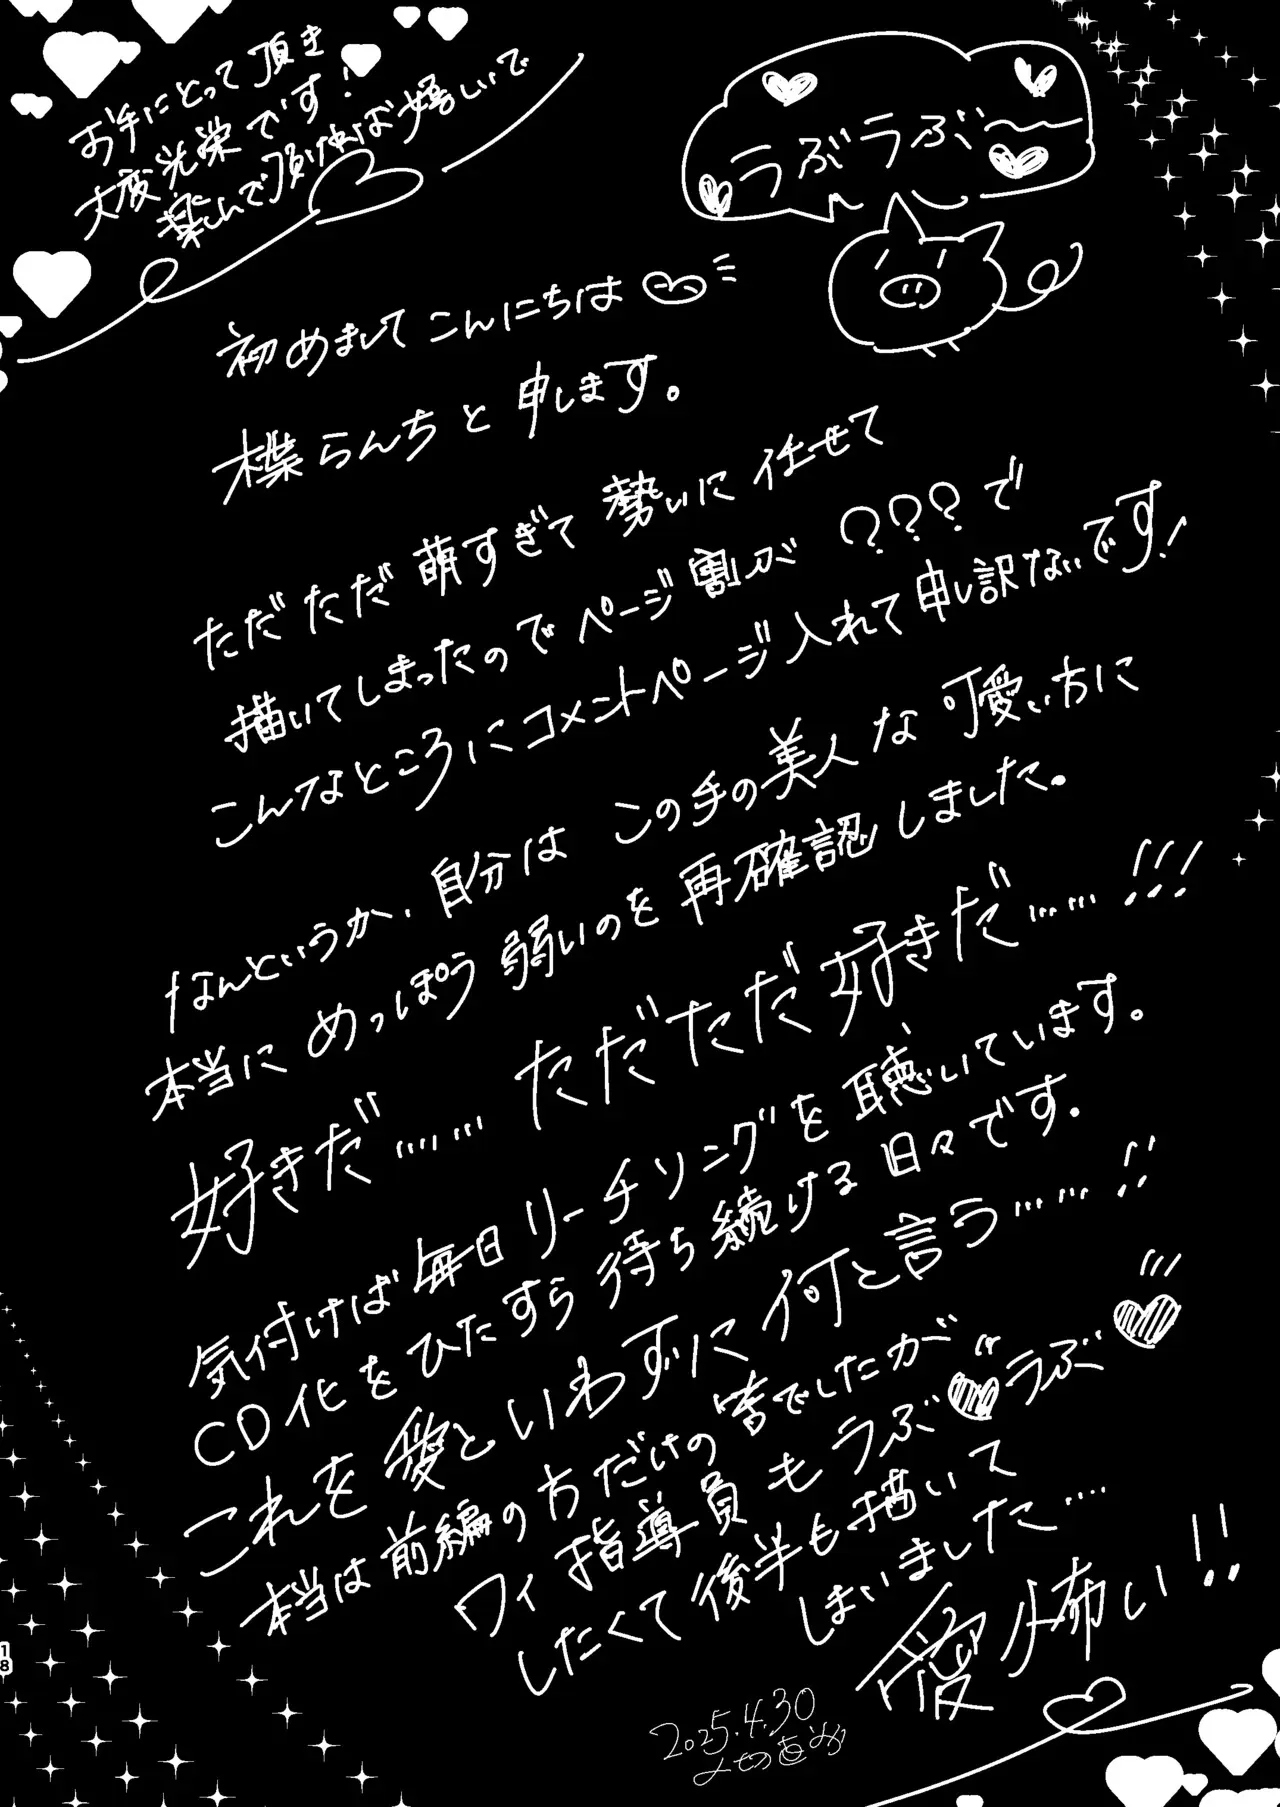 お手にとって頂き
大変光栄です!
楽しんで頂ければ嬉しいで
ラぶラぶ〜
初めましてこんにちは
楪らんちと申します。
ただただ萌すぎて勢いに任せて
描いてしまったのでページ割が???で
こんなところにコメントページ入れて申し訳ないです!
なんというか、自分はこの手の美人な可愛い方に
本当にめっぽう弱いのを再確認しました。
好きだ…… ただただ好きだ……!!!
気付けば毎日リーチソングを聴いています。
CD化をひたすら待ち続ける日々です.
これを愛といわずに何と言う……!!
本当は前編の方だけの筈でしたが
ワイ指導員もラぶ♥ラぶ♥
したくて後半も描いて
しまいました….
愛怖い!!
2025.4.30
18